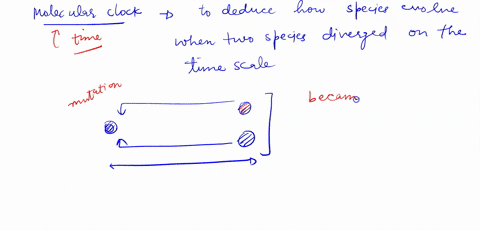 Molecular clock → to deduce how species evolve
↑ time when two species diverged on the
time scale
mutation
became